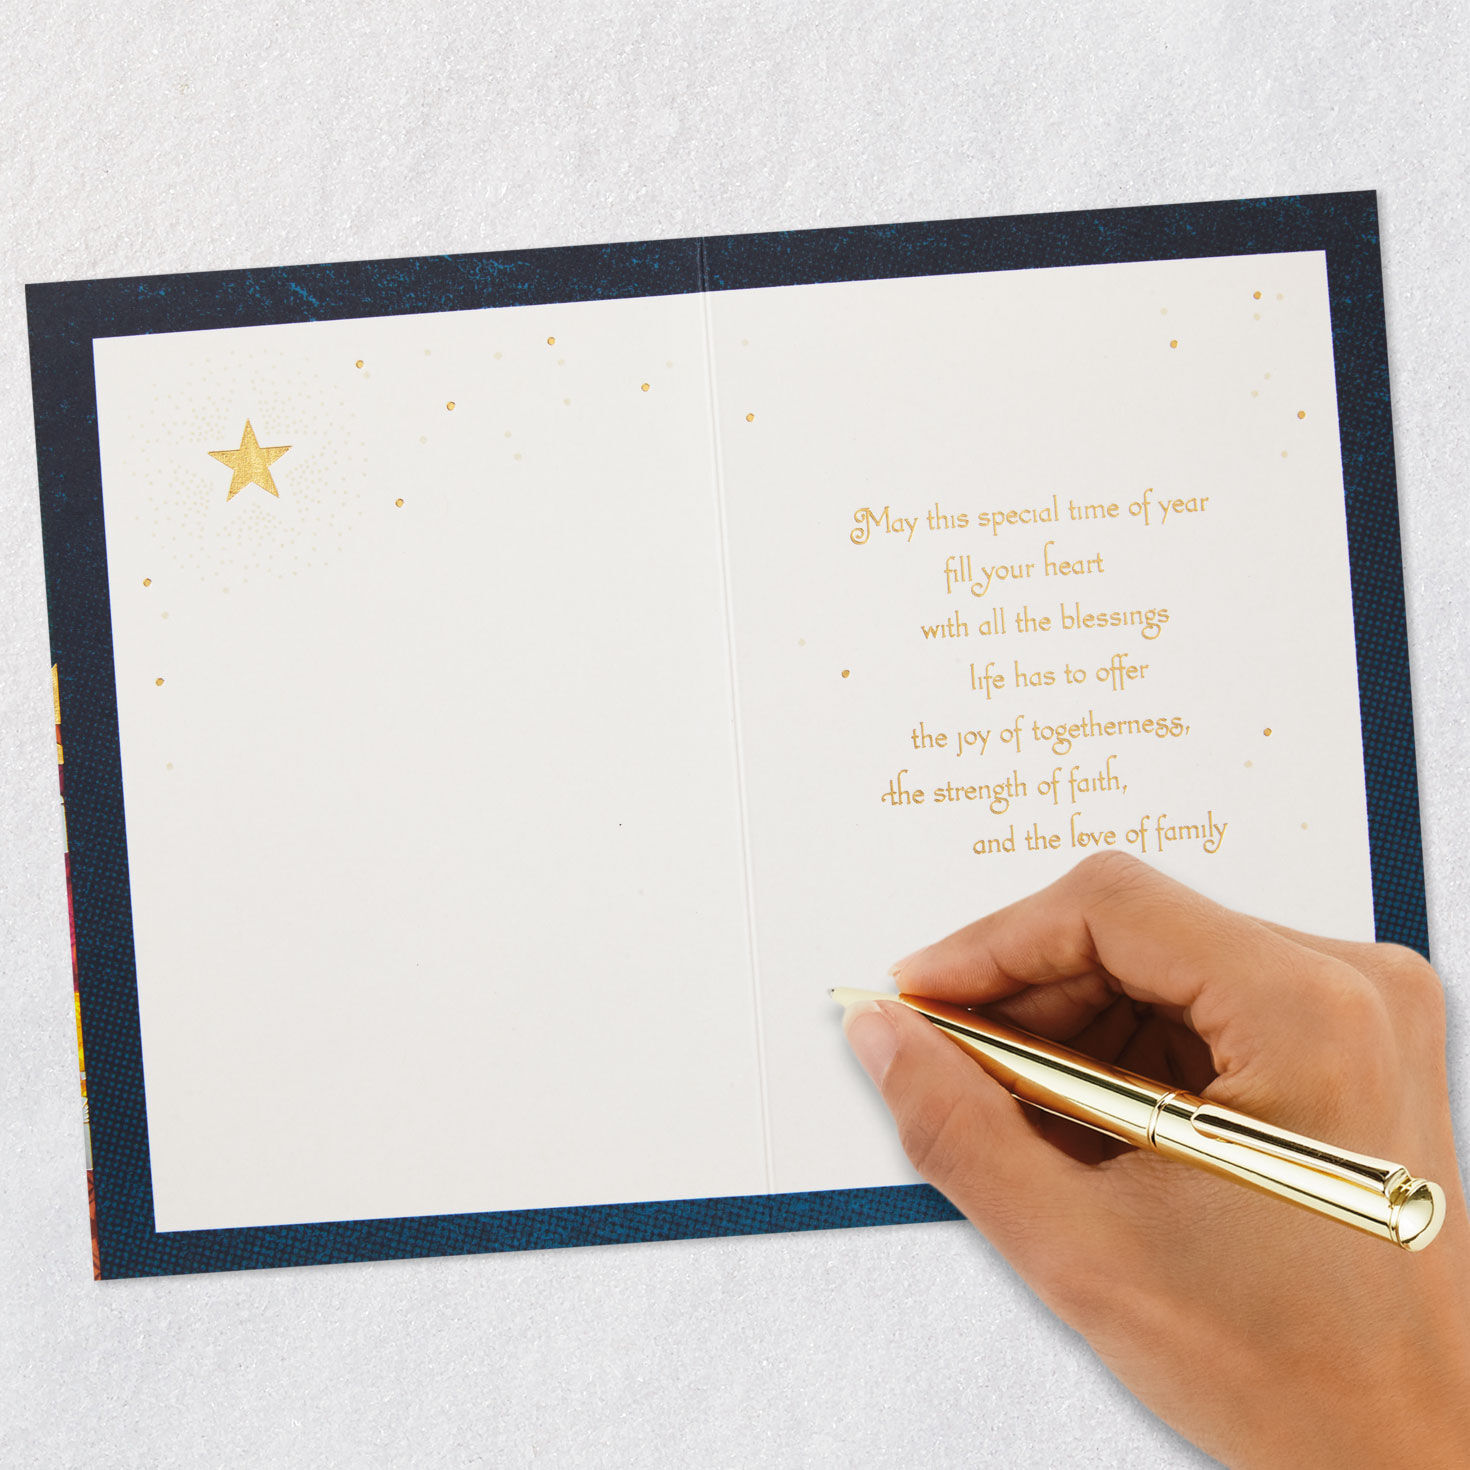 May this special time of year
fill your heart
with all the blessings
life has to offer
the joy of togetherness,
the strength of faith,
and the love of family